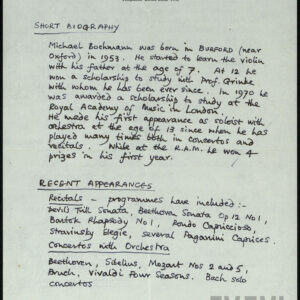 SHORT BIOGRAPHY
Michael Bochmann was born in BURFORD (near
Oxford) in 1953. He started to learn the violin
with his father at the age of 7. At 12 he
won a scholarship to study with Prof. Grinke
with whom he has been ever since. In 1970 he
was awarded a scholarship to study at the
Royal Academy of Music in London.
He made his first appearance as soloist with
orchestra at the age of 13 since when he has
played many times both in concertos and
recitals. While at the R.A.M. he won 4
prizes in his first year.
RECENT APPEARANCES
Recitals - programmes have included :-
Devil's Trill Sonata, Beethoven Sonata Op 12 No 1,
Bartok Rhapsody No 1 Rondo Capriccioso,
Stravinsky Elegie, several Paganini Caprices.
Concertos with Orchestra
Beethoven, Sibelius, Mozart Nos 2 and 5,
Bruch, Vivaldi Four Seasons. Bach solo
concertos